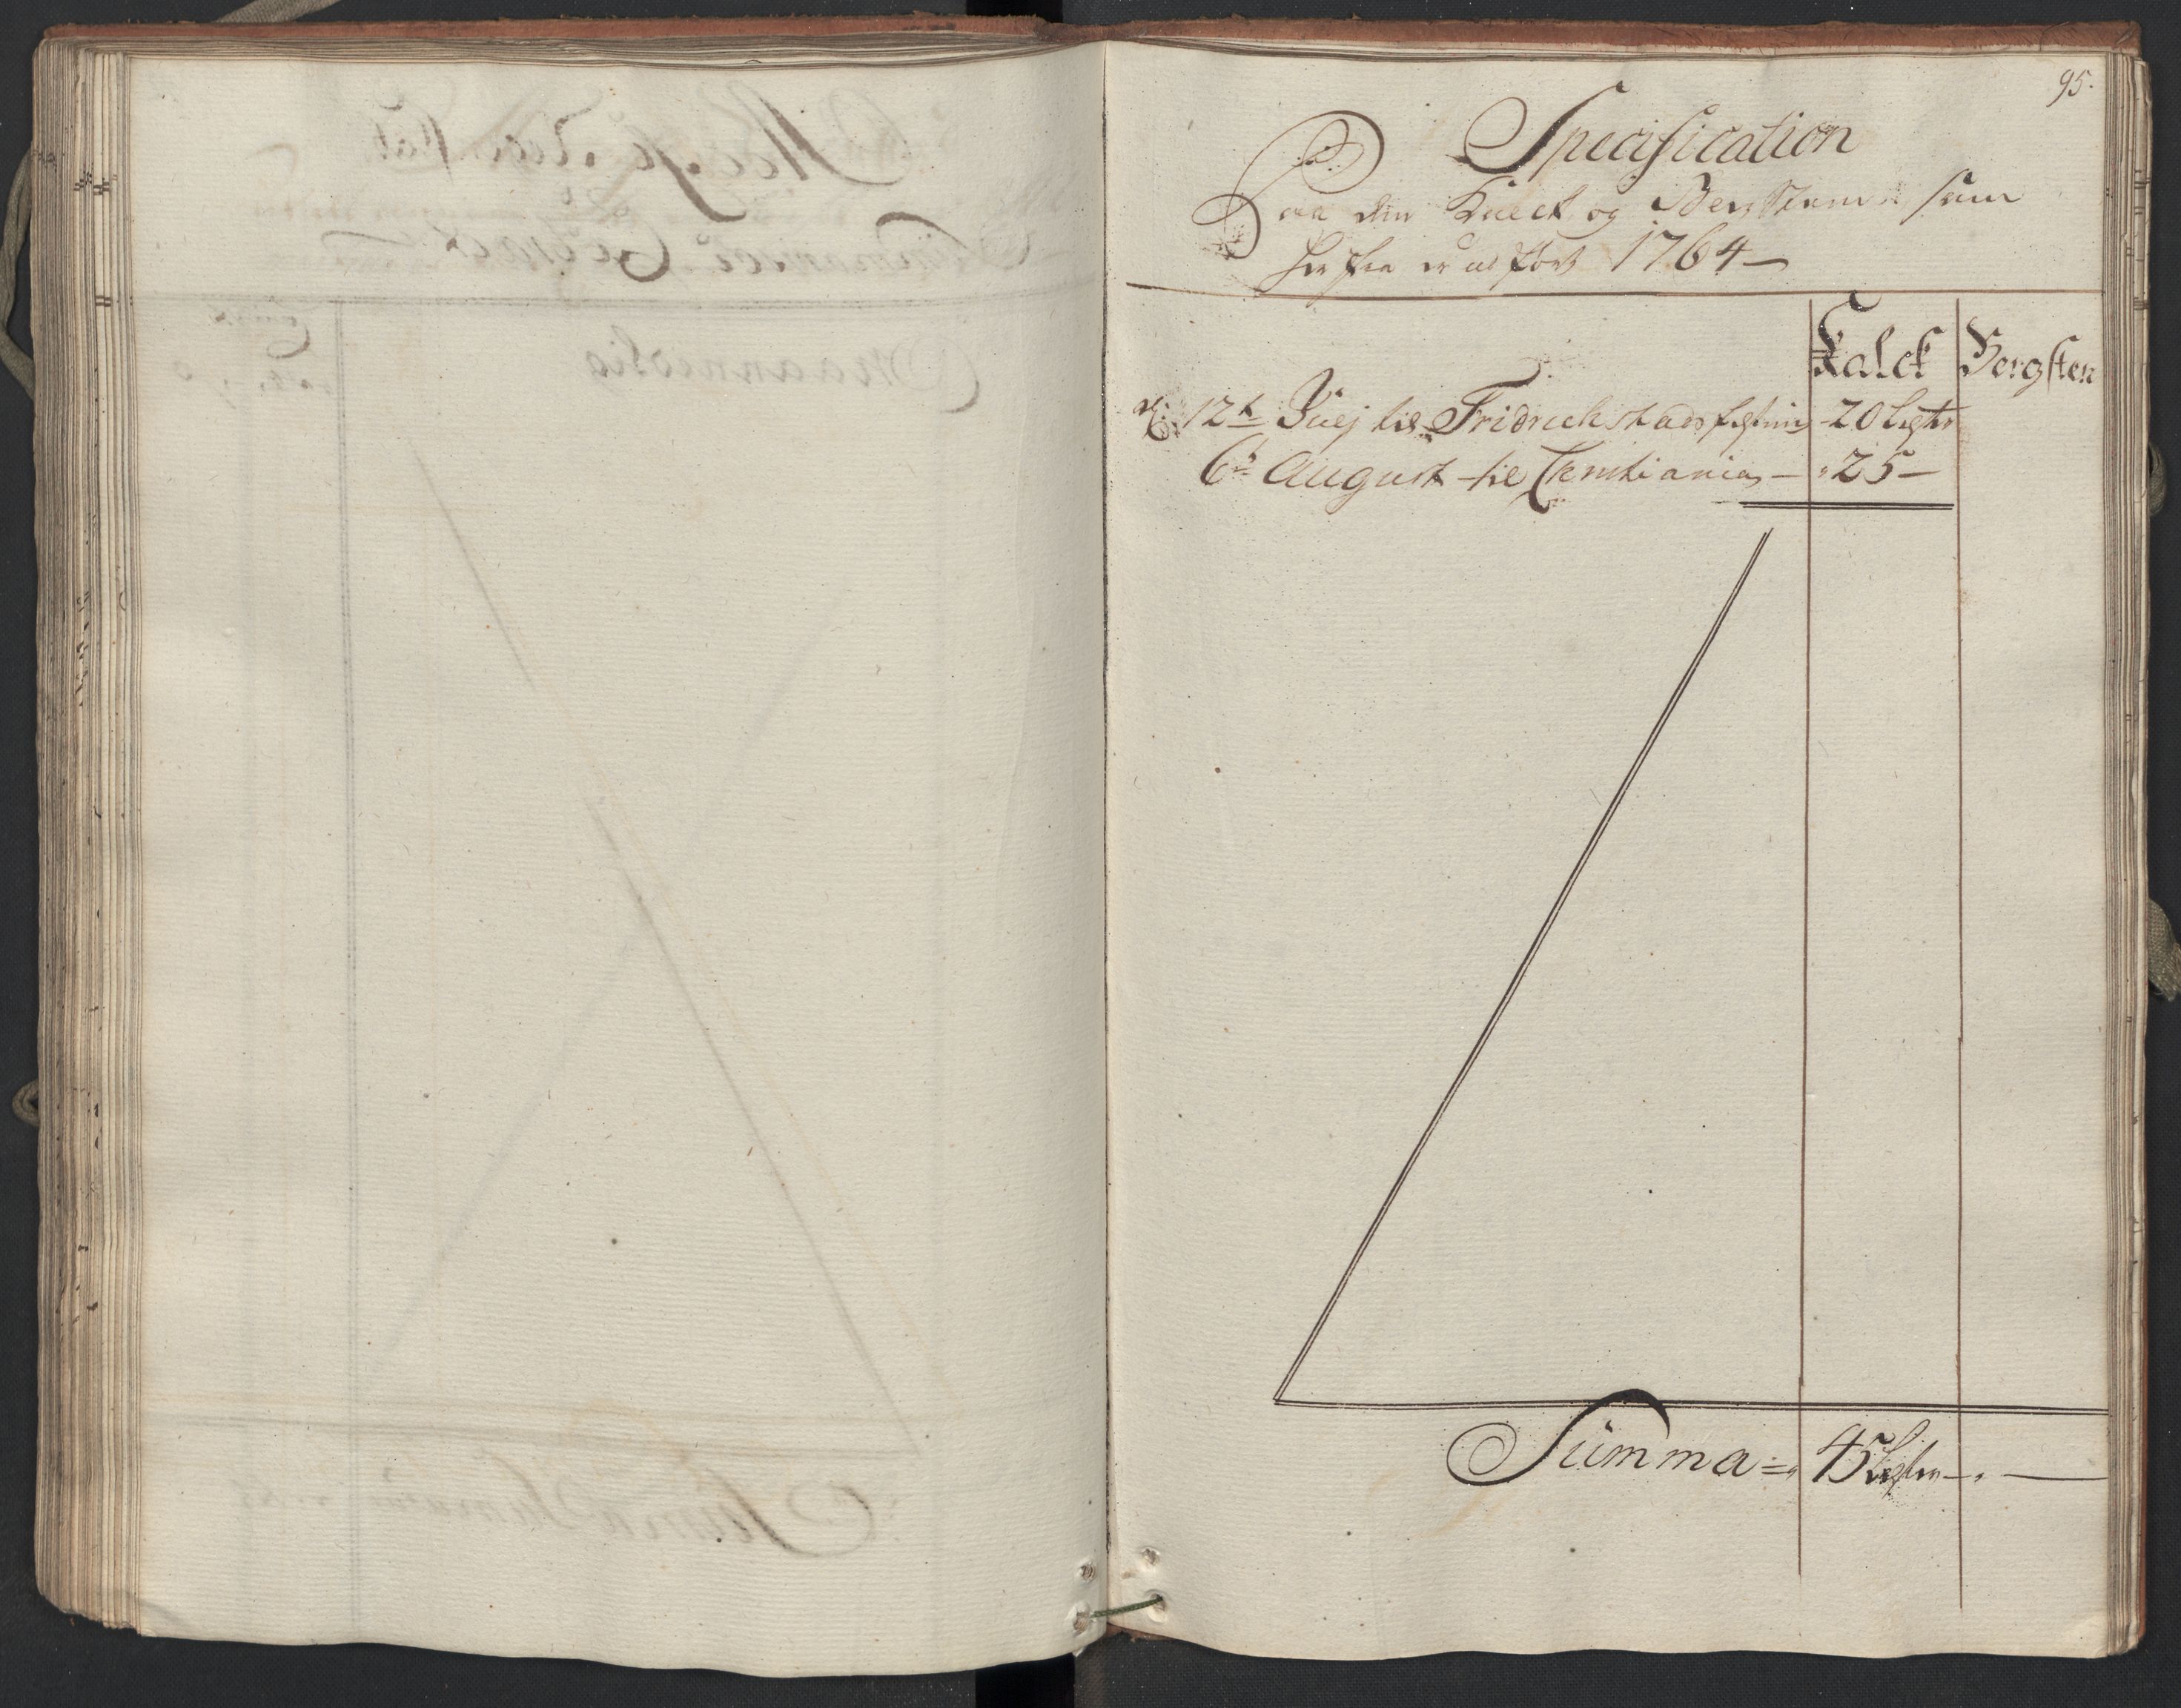 95.
Specification
Paa den Kalck og Bergsteene som
her fra er udført 1764
Kalck Bergsten
d. 12t Julj til Fridrichstads festning 20 Legter
6t August til Christiania 25
Summa 45 Legter